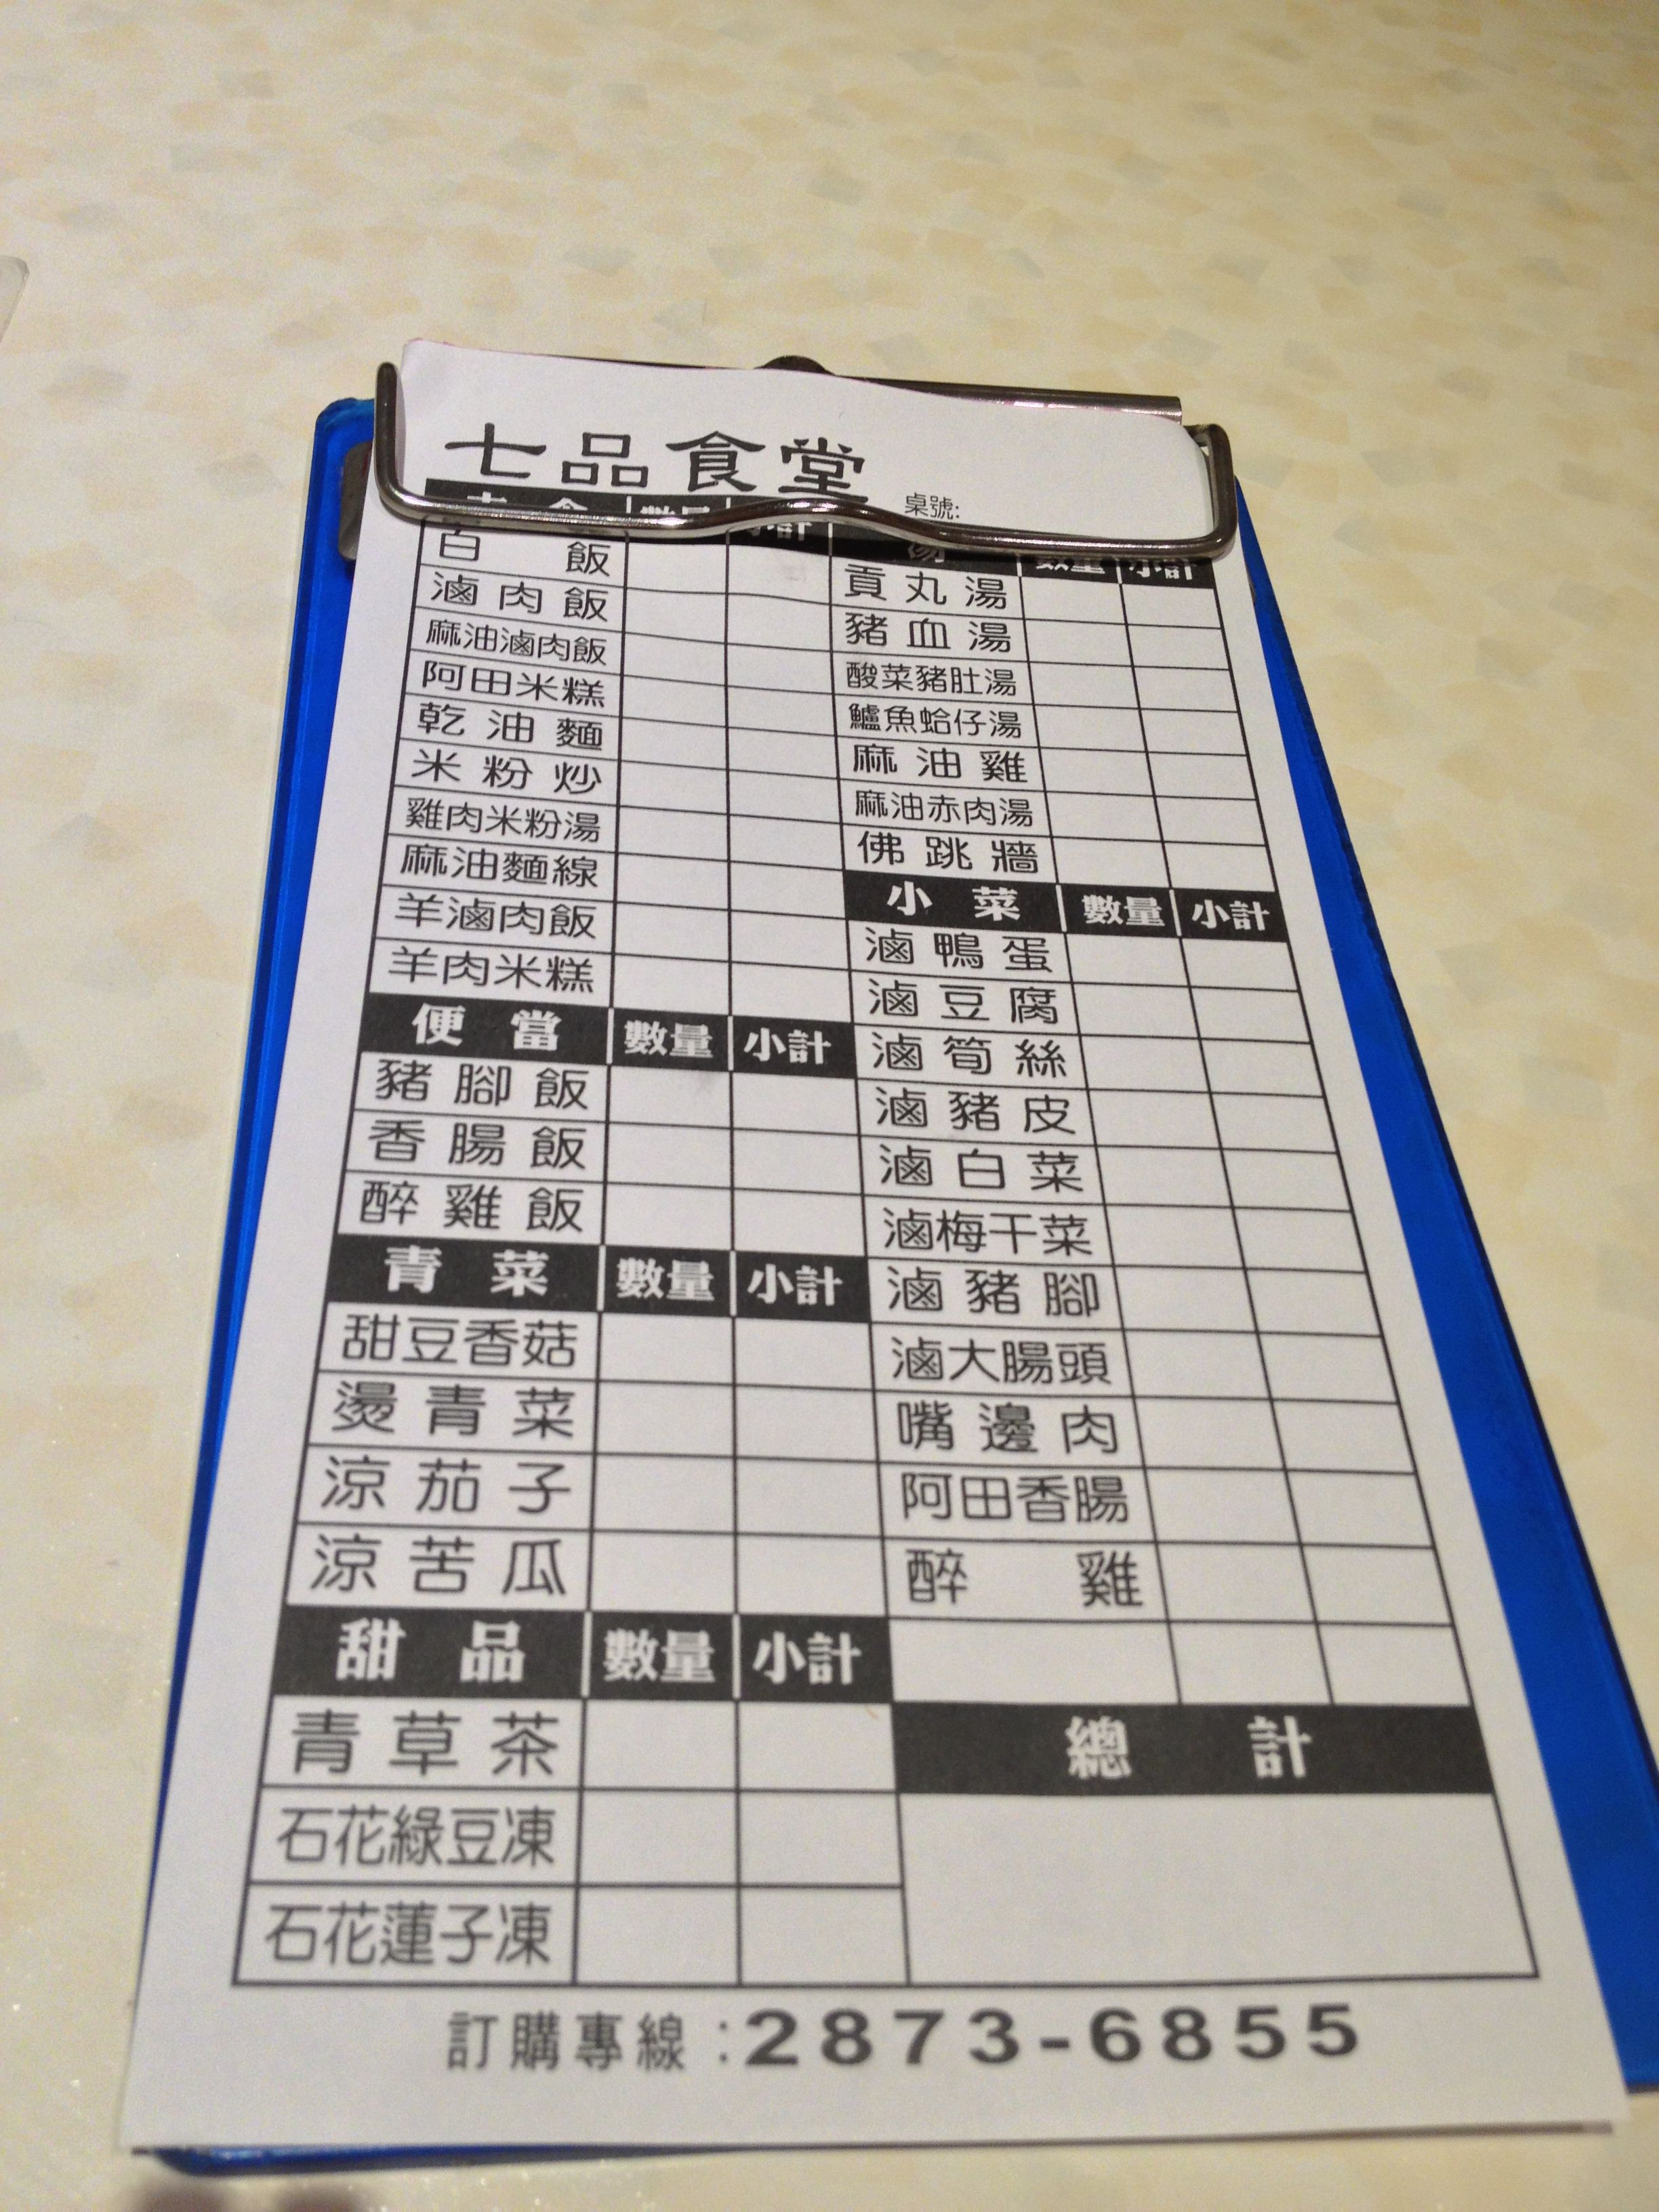 七品食堂
桌號:
數量 小計
白飯
滷肉飯
麻油滷肉飯
阿田米糕
乾油麵
米粉炒
雞肉米粉湯
麻油麵線
羊滷肉飯
羊肉米糕
便當 數量 小計
豬腳飯
香腸飯
醉雞飯
青菜 數量 小計
甜豆香菇
燙青菜
涼茄子
涼苦瓜
甜品 數量 小計
青草茶
石花綠豆凍
石花蓮子凍
湯 數量 小計
貢丸湯
豬血湯
酸菜豬肚湯
鱸魚蛤仔湯
麻油雞
麻油赤肉湯
佛跳牆
小菜 數量 小計
滷鴨蛋
滷豆腐
滷筍絲
滷豬皮
滷白菜
滷梅干菜
滷豬腳
滷大腸頭
嘴邊肉
阿田香腸
醉雞
總計
訂購專線:2873-6855